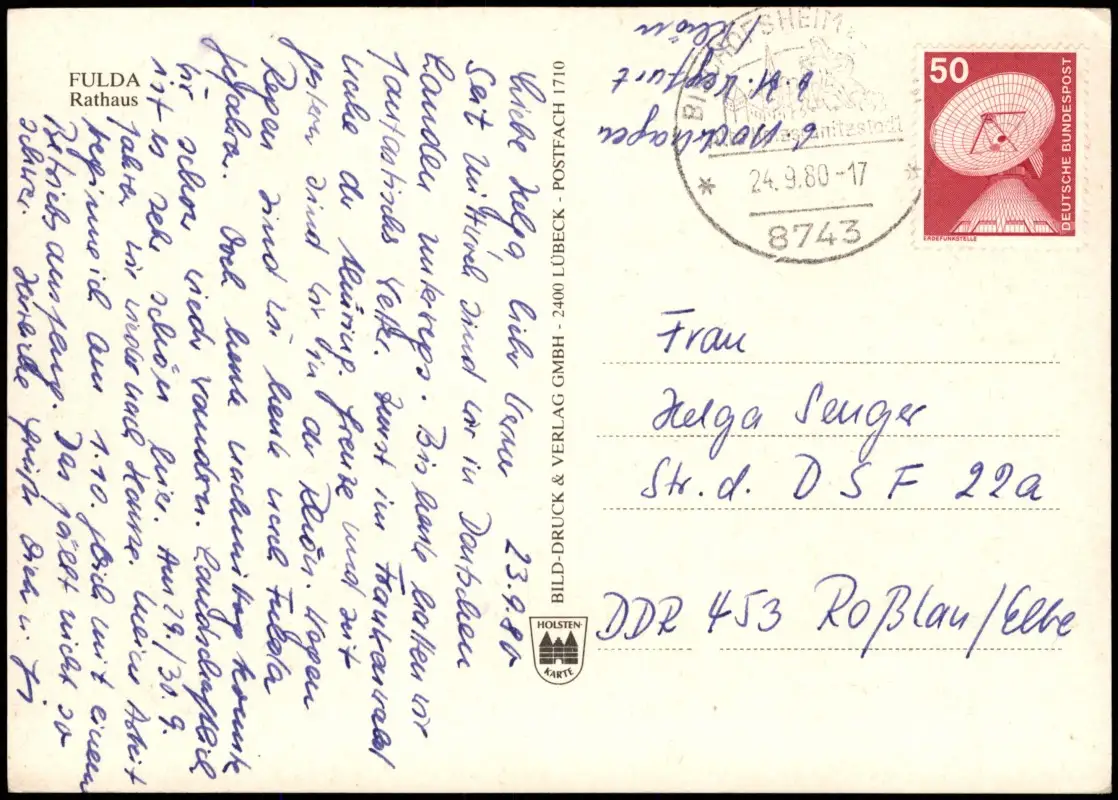 FULDA
Rathaus
Liebe Helga, lieber Werner 23.9.80
Seit Mittwoch sind wir in Deutschen
Landen unterwegs. Bis heute hatten wir
fantastisches Wetter. Zuerst im Frankenwald
nahe der Grenze und seit
gestern sind wir in der Rhön. Wegen
Regen sind wir heute nach Fulda
gefahren. Doch heute nachmittag konnte
wir schon wieder wandern. Landschaftlich
ist es sehr schön hier. Am 29./30.9.
fahren wir wieder nach Hause. Meine Arbeit
beginnt am 1.10. gleich mit einem
Betriebsausflug. Das fällt nicht so
schwer. Herzliche Grüße Dich u.
BILD-DRUCK & VERLAG GMBH - 2400 LÜBECK - POSTFACH 1710
HOLSTEN-
KARTE
Rhön
24.9.80-17
8743
50
DEUTSCHE BUNDESPOST
ERDEFUNKSTELLE
Frau
Helga Senger
Str. d. DSF 22a
DDR 453 Roßlau/Elbe